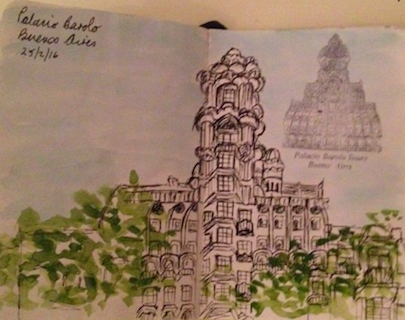 Palacio Barolo
Buenos Aires
25/2/16
Palacio Barolo Tours
Buenos Aires